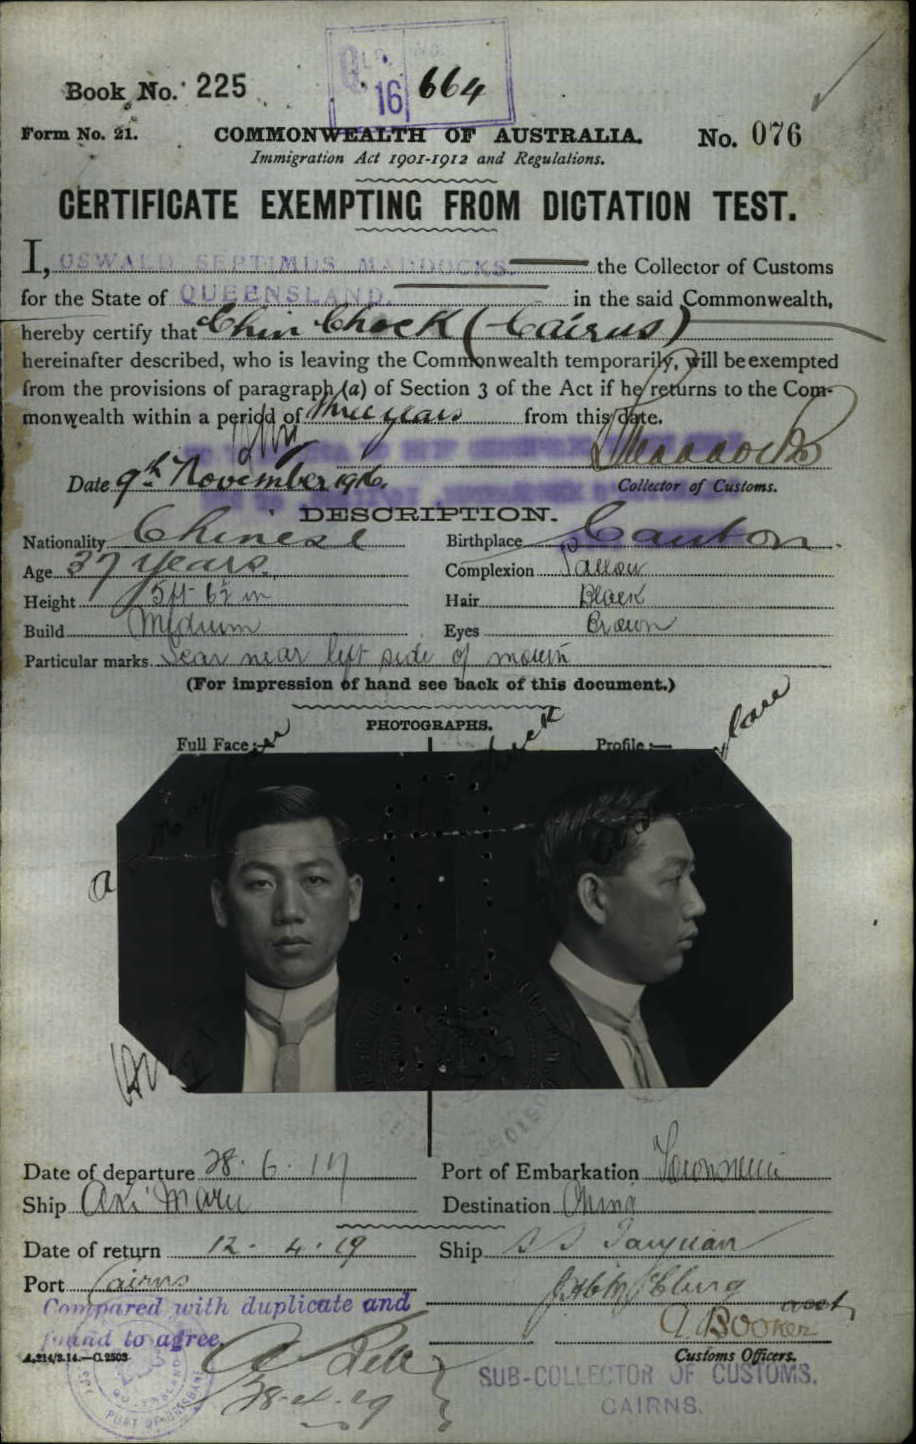 QLD. No.
16 664
Book No. 225
Form No. 21. COMMONWEALTH OF AUSTRALIA. No. 076
Immigration Act 1901-1912 and Regulations.
CERTIFICATE EXEMPTING FROM DICTATION TEST.
I, OSWALD SEPTIMUS MADDOCKS. the Collector of Customs
for the State of QUEENSLAND. in the said Commonwealth,
hereby certify that Chin Chock (Cairns)
hereinafter described, who is leaving the Commonwealth temporarily, will be exempted
from the provisions of paragraph (a) of Section 3 of the Act if he returns to the Com-
monwealth within a period of three years from this date.
Maddocks
Date 9th November 1916. Collector of Customs.
DESCRIPTION.
Nationality Chinese Birthplace Canton.
Age 37 years. Complexion Sallow
Height 5ft 6½ in Hair Black
Build Medium Eyes Brown
Particular marks Scar near left side of mouth
(For impression of hand see back of this document.)
PHOTOGRAPHS.
Full Face:— Profile:—
Date of departure 28.6.17 Port of Embarkation Townsville
Ship Aki Maru Destination China
Date of return 12.4.19 Ship S S Taiyuan
Port Cairns
Compared with duplicate and
found to agree.
A. Booker
A.214/3.14.—C.2503 Customs Officers.
28-4-19 SUB-COLLECTOR OF CUSTOMS,
CAIRNS.
PORT OF BRISBANE